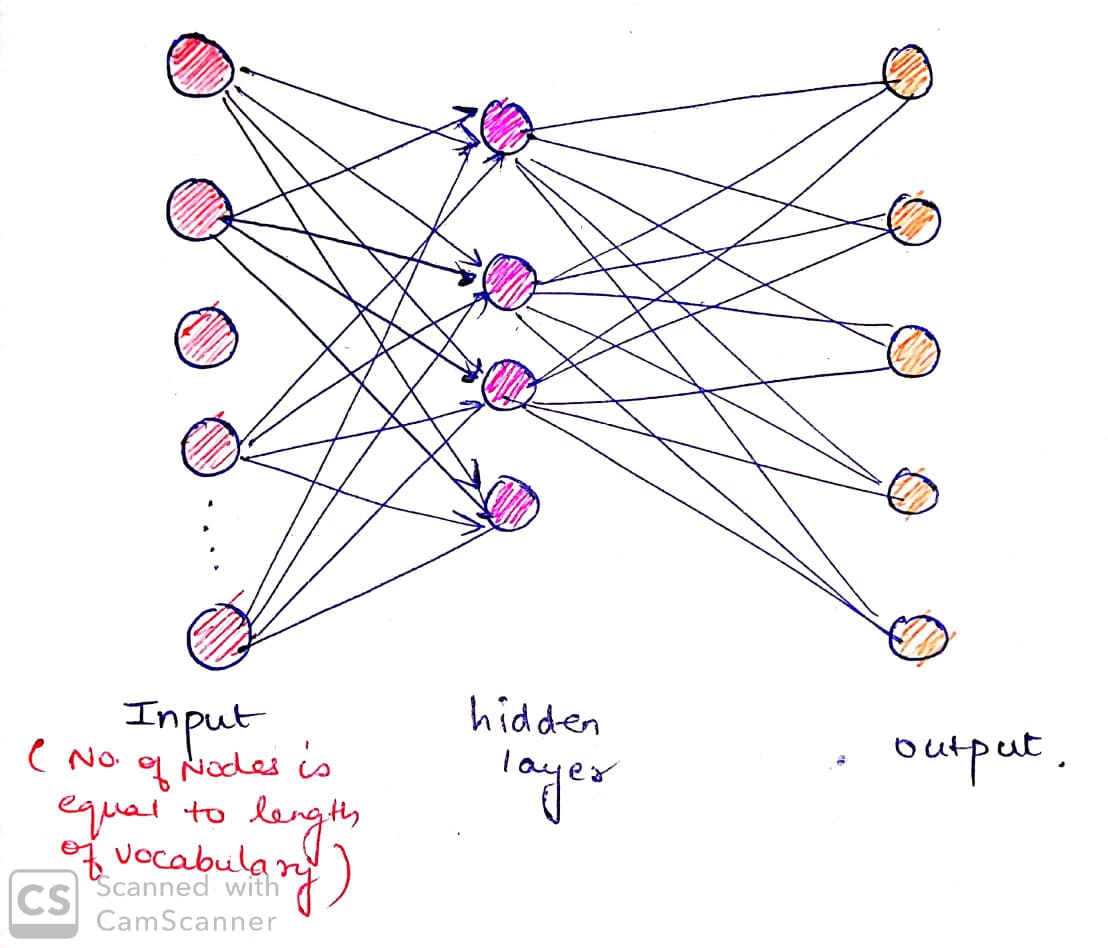 Input
( No. of Nodes is
equal to length
of vocabulary)
hidden
layer
output.
CS Scanned with
CamScanner